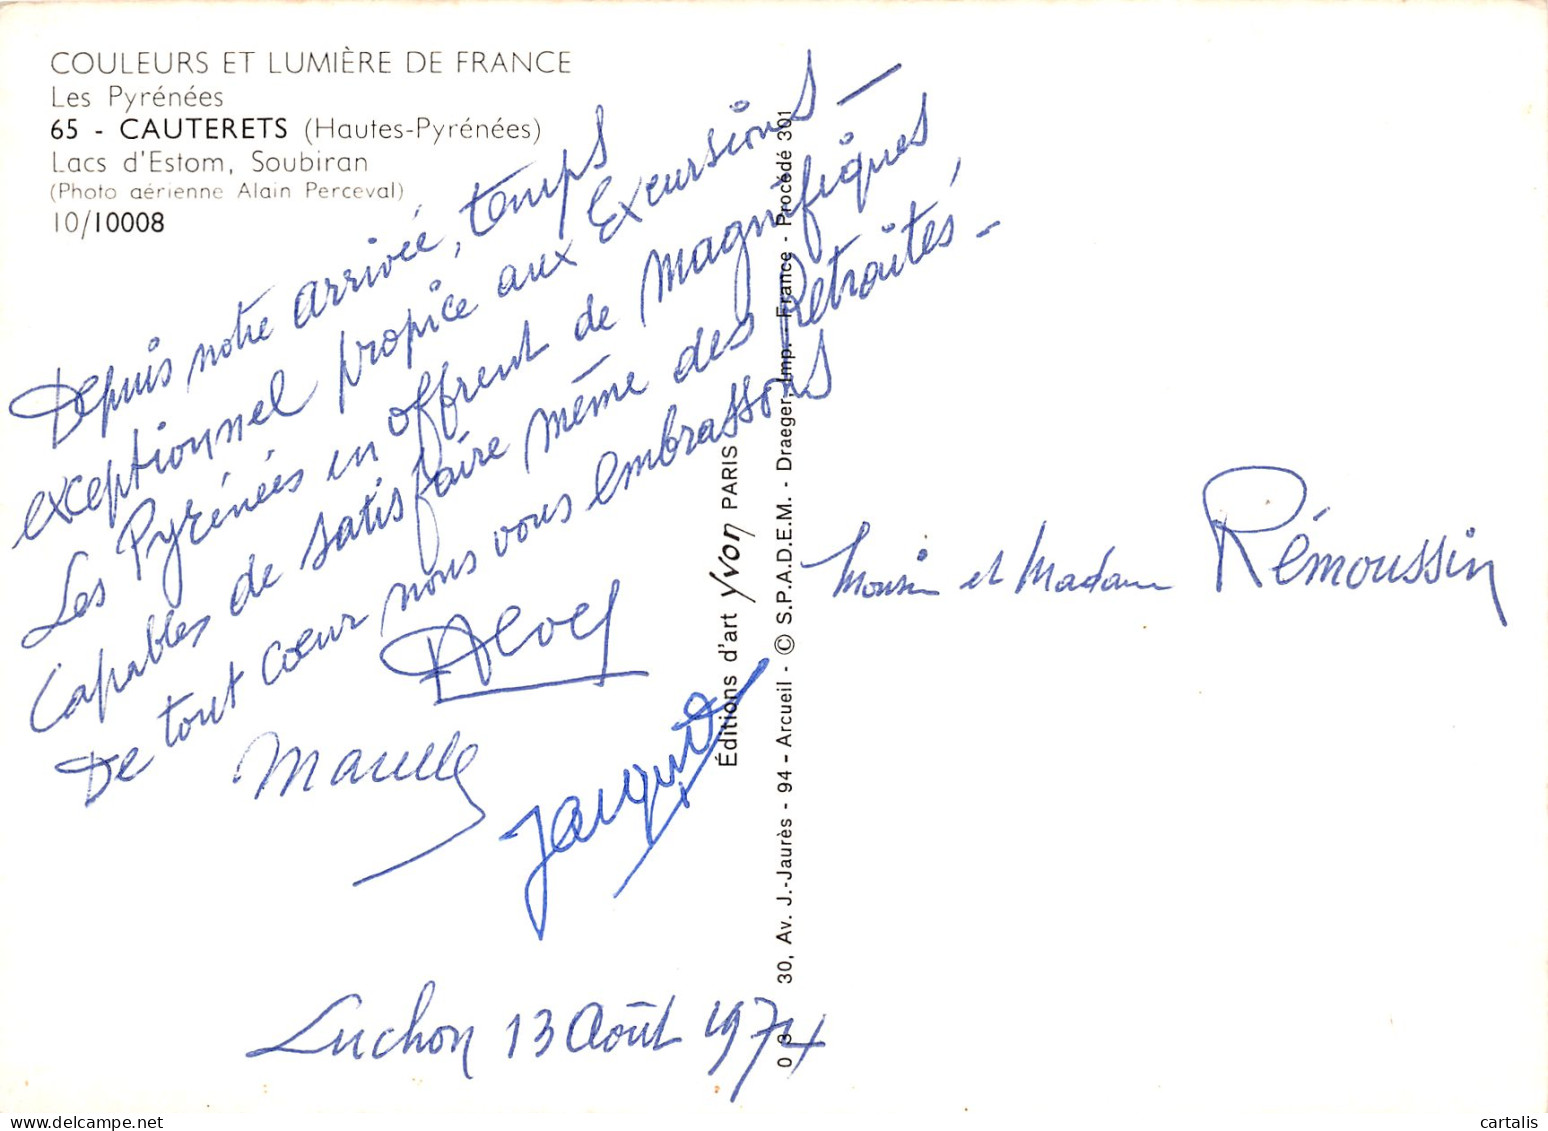 COULEURS ET LUMIÈRE DE FRANCE
Les Pyrénées
65 - CAUTERETS (Hautes-Pyrénées)
Lacs d'Estom, Soubiran
(Photo aérienne Alain Perceval)
10/10008
Depuis notre arrivée, temps
exceptionnel propice aux Excursions -
Les Pyrénées en offrent de magnifiques
Capables de satisfaire même des Retraités, -
De tout cœur nous vous embrassons
Marcelle
Luchon 13 Août 1974
Éditions d'art Yvon PARIS
03 30, Av. J.-Jaurès - 94 - Arcueil - © S.P.A.D.E.M. - Draeger, Imp. - France - Procédé 301
Monsieur et Madame Rémoussin
cartalis